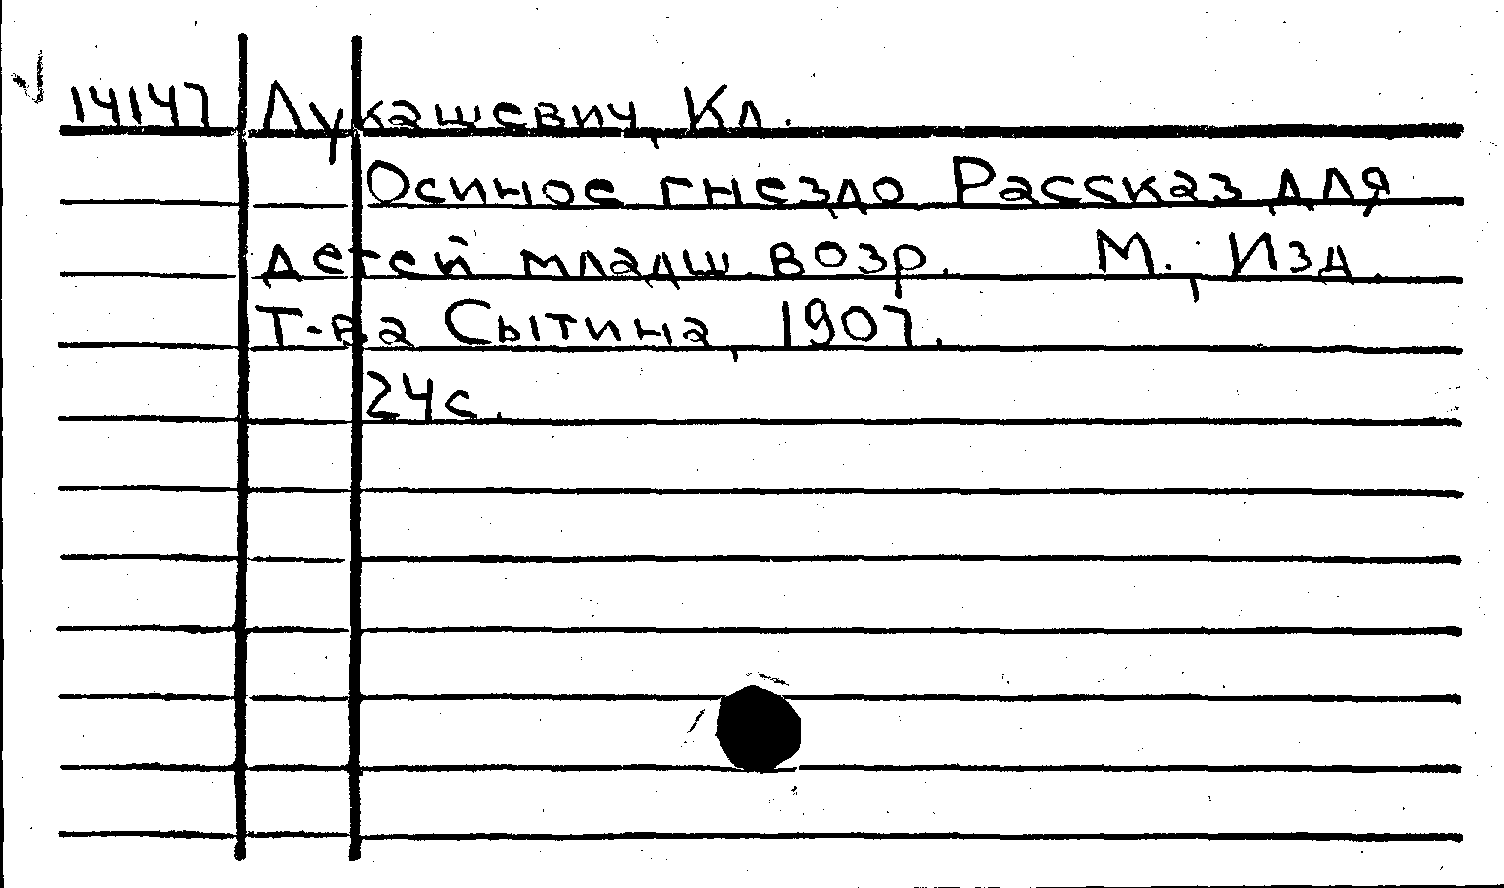 14147 Лукашевич, Кл.
Осиное гнездо Рассказ для
детей младш. возр. М., Изд.
Т-ва Сытина, 1907.
24 с.